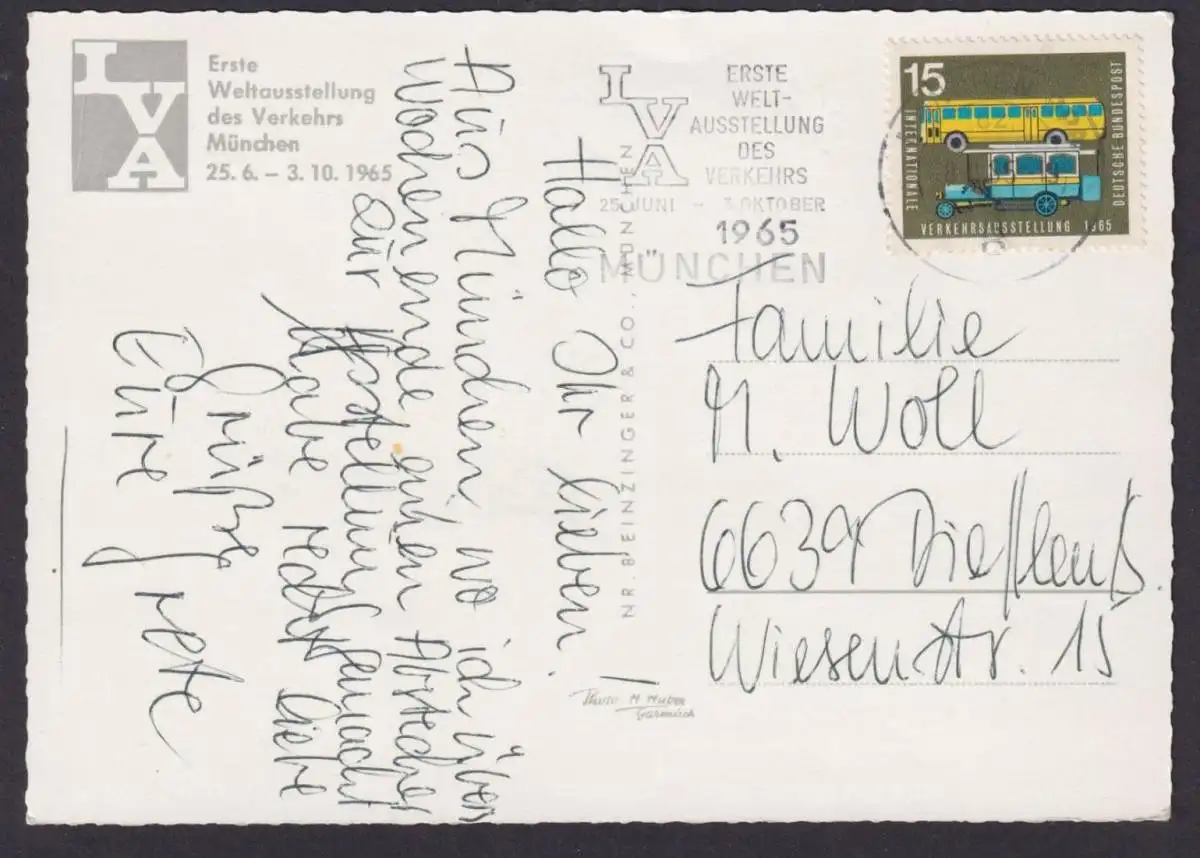 IVA
Erste
Weltausstellung
des Verkehrs
München
25. 6. – 3. 10. 1965
IVA
ERSTE
WELT-
AUSSTELLUNG
DES
VERKEHRS
25. JUNI – 3. OKTOBER
1965
MÜNCHEN
15
DEUTSCHE BUNDESPOST
INTERNATIONALE
VERKEHRSAUSSTELLUNG 1965
Hallo Ihr Lieben!
Aus München, wo ich übers
Wochenende einen Abstecher
zur Ausstellung gemacht
habe recht liebe
Grüße
Eure
NR. 8 BEINZINGER & CO., MÜNCHEN
Photo H Huber
Garmisch
Familie
N. Woll
6639 Dieflen
Wiesenstr. 15